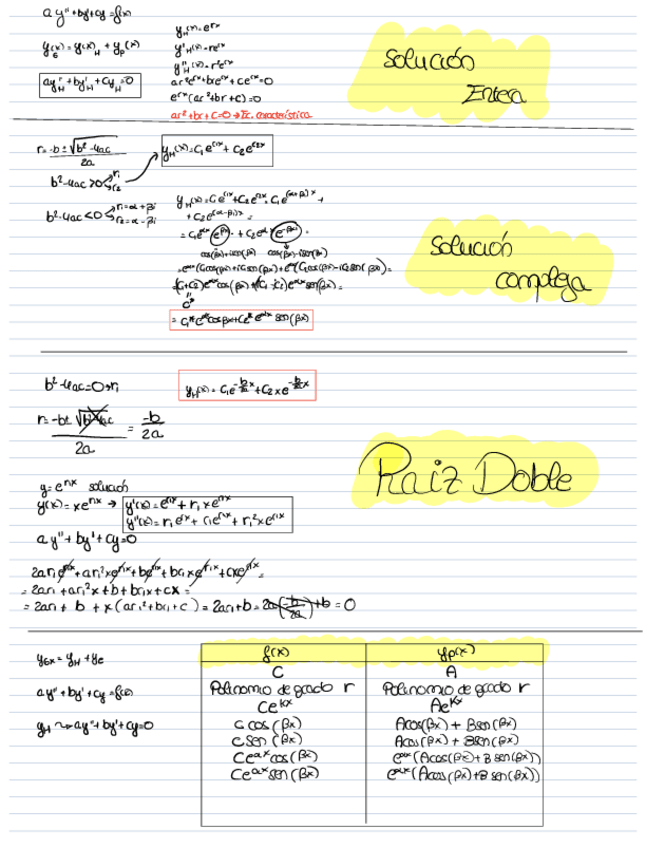 ay''+by'+cy=f(x)
y_G(x)=y(x)_H + y_p(x)
ay_H''+by_H'+cy_H=0
y_H(x)=e^{rx}
y'_H(x)=re^{rx}
y''_H(x)=r²e^{rx}
ar²e^{rx}+bre^{rx}+ce^{rx}=0
e^{rx}(ar²+br+c)=0
ar²+br+c=0→Ec. característica
Solución
Entera
r=-b±√b²-4ac
2a
y_H(x)=c₁e^{r₁x}+c₂e^{r₂x}
b²-4ac>0 r₁
r₂
b²-4ac<0 r₁=α+βi
r₂=α-βi
y_H(x)=c₁e^{r₁x}+c₂e^{r₂x}=c₁e^{(α+βi)x}+
+c₂e^{(α-βi)x}=
=c₁e^{αx}e^{βxi}+c₂e^{αx}e^{-βxi}
cos(βx)+isen(βx) cos(βx)-isen(βx)
=e^{αx}(c₁cos(βx)+ic₁sen(βx))+e^{αx}(c₂cos(βx)-ic₂sen(βx))=
=(c₁+c₂)e^{αx}cos(βx)+i(c₁-c₂)e^{αx}sen(βx)=
=c₁*e^{αx}cosβx+c₂*e^{αx}sen(βx)
Solución
compleja
b²-4ac=0→r₁
y_H(x)=c₁e^{-b/2a x}+c₂xe^{-b/2a x}
r=-b±√b²-4ac = -b
2a 2a
Raiz Doble
y=e^{r₁x} solución
y(x)=xe^{r₁x} → y'(x)=e^{r₁x}+r₁xe^{r₁x}
y''(x)=r₁e^{r₁x}+r₁e^{r₁x}+r₁²xe^{r₁x}
ay''+by'+cy=0
2ar₁e^{r₁x}+ar₁²xe^{r₁x}+be^{r₁x}+br₁xe^{r₁x}+cxe^{r₁x}=
=2ar₁+ar₁²x+b+br₁x+cx=
=2ar₁+b+x(ar₁²+br₁+c)=2ar₁+b=2a(-b/2a)+b=0
y_{Gx}=y_H+y_e
ay''+by'+cy=f(x)
y_H→ay''+by'+cy=0
f(x) y_p(x)
C A
Polinomio de grado r Polinomio de grado r
Ce^{kx} Ae^{kx}
C cos(βx) Acos(βx)+Bsen(βx)
C sen(βx) Acos(βx)+Bsen(βx)
Ce^{αx}cos(βx) e^{αx}(Acos(βx)+Bsen(βx))
Ce^{αx}sen(βx) e^{αx}(Acos(βx)+Bsen(βx))